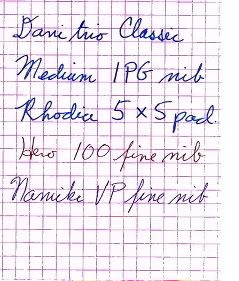 Danitrio Classic
Medium IPG nib
Rhodia 5 x 5 pad.
Hero 100 fine nib
Namiki VP fine nib